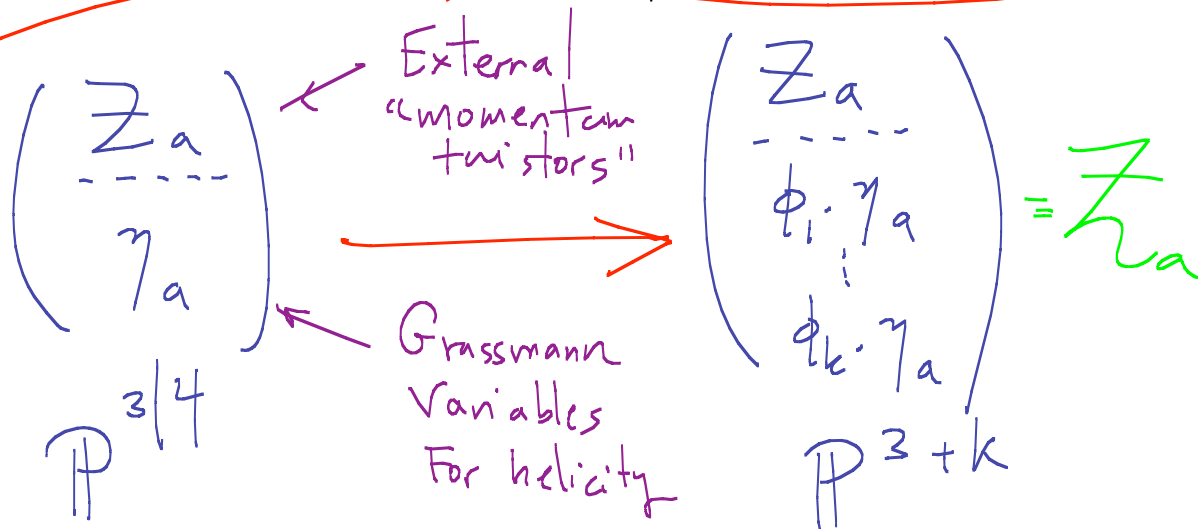 ( Z_a
- - - - -
η_a )
P^{3|4}
External
“momentum
twistors”
Grassmann
Variables
For helicity
( Z_a
- - - - -
ϕ_1 · η_a
⋮
ϕ_k · η_a )
= Z_a
P^{3+k}